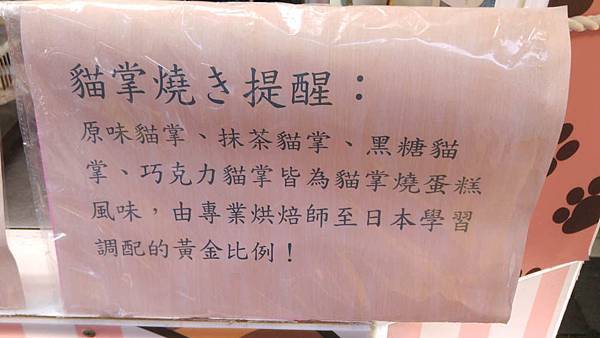 貓掌燒き提醒：
原味貓掌、抹茶貓掌、黑糖貓
掌、巧克力貓掌皆為貓掌燒蛋糕
風味，由專業烘焙師至日本學習
調配的黃金比例！